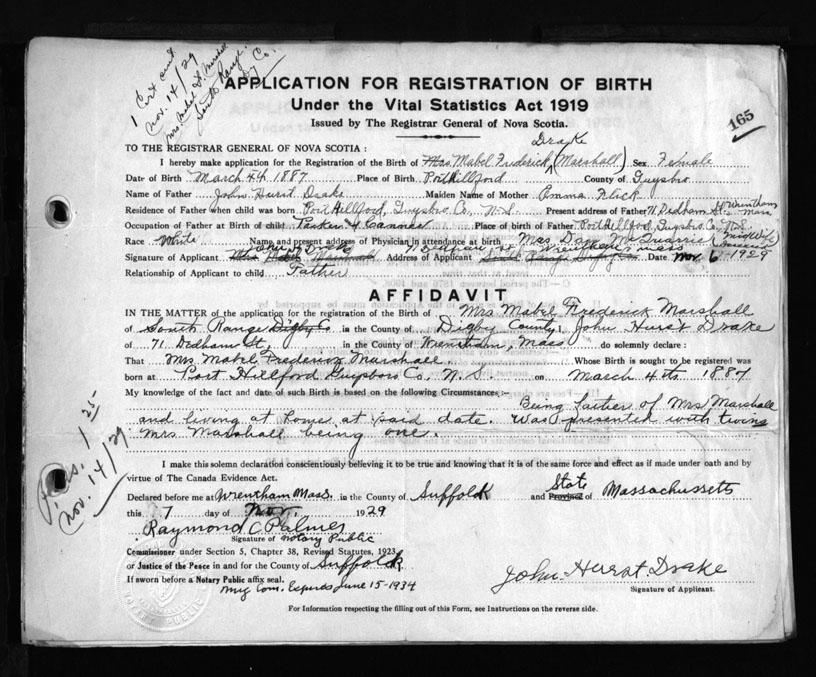 1 Cert sent
Nov. 14/29
Mrs Mabel F. Marshall
South Range
Digby Co.
165
APPLICATION FOR REGISTRATION OF BIRTH
Under the Vital Statistics Act 1919
Issued by The Registrar General of Nova Scotia.
TO THE REGISTRAR GENERAL OF NOVA SCOTIA :
Drake
I hereby make application for the Registration of the Birth of Mrs. Mabel Frederick (Marshall) Sex Female
Date of Birth March 4th 1887 Place of Birth Port Hillford County of Guysboro
Name of Father John Hurst Drake Maiden Name of Mother Emma Flick
Residence of Father when child was born Port Hillford, Guysboro Co. N.S. Present address of Father 71 Dedham St. Wrentham Mass
Occupation of Father at Birth of child Canner Place of birth of Father Port Hillford, Guysboro Co. N.S.
Race White Name and present address of Physician in attendance at birth Mrs. McQuarrie Midwife
Signature of Applicant Address of Applicant Date Nov. 6 1929
Relationship of Applicant to child Father
AFFIDAVIT
IN THE MATTER of the application of the registration of the Birth of Mrs Mabel Frederick Marshall
of South Range Digby Co in the County of Digby County I, John Hurst Drake
of 71 Dedham St, in the County of Wrentham, Mass do solemnly declare :
That Mrs Mabel Frederick Marshall Whose Birth is sought to be registered was
born at Port Hillford Guysboro Co, N.S. on March 4th 1887
My knowledge of the fact and date of such Birth is based on the following Circumstances:-
Being father of Mrs Marshall
and living at home at said date. Was presented with twins
Mrs Marshall being one.
I make this solemn declaration conscientiously believing it to be true and knowing that it is of the same force and effect as if made under oath and by
virtue of The Canada Evidence Act.
State
Declared before me at Wrentham Mass. in the County of Suffolk and Province of Massachussetts
this 7 day of Nov. 1929
Raymond C Palmer
Signature of Notary Public
Commissioner under Section 5, Chapter 38, Revised Statutes, 1923
or Justice of the Peace in and for the County of Suffolk
If sworn before a Notary Public affix seal.
My Com. Expires June 15-1934
John Hurst Drake
Signature of Applicant.
For Information respecting the filling out of this Form, see Instructions on the reverse side.
Nov. 14/29